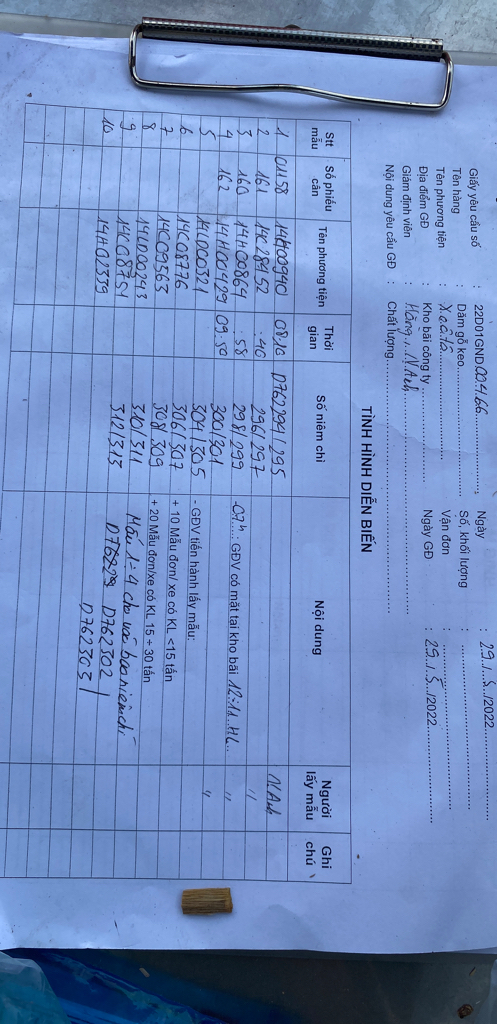 Giấy yêu cầu số : 22D01GND 004166 Ngày : 29./.5../2022
Tên hàng : Dăm gỗ keo Số, khối lượng :
Tên phương tiện : Xe ô tô Vận đơn :
Địa điểm GĐ : Kho bãi công ty Ngày GĐ : 29./.5../2022
Giám định viên : Hằng, N Anh
Nội dung yêu cầu GĐ : Chất lượng
TÌNH HÌNH DIỄN BIẾN
Stt mẫu Số phiếu cân Tên phương tiện Thời gian Số niêm chì Nội dung Người lấy mẫu Ghi chú
1 01158 14H00940 08:10 D762294/295 N.Anh
2 161 14C28952 :40 296/297 -07h... GĐV có mặt tại kho bãi "
3 160 14H00864 :58 298/299
4 162 14H00429 09:50 300/301 "
5 14LD00321 304/305 - GĐV tiến hành lấy mẫu: "
6 14C08776 306/307 + 10 Mẫu đơn/ xe có KL <15 tấn
7 14C09563 308/309 + 20 Mẫu đơn/xe có KL 15 ÷ 30 tấn
8 14LD00243 310/311 Mẫu 1÷4 cho vào bao niêm chì
9 14C08751 312/313 D762293 D762302
10 14H02339 D762303